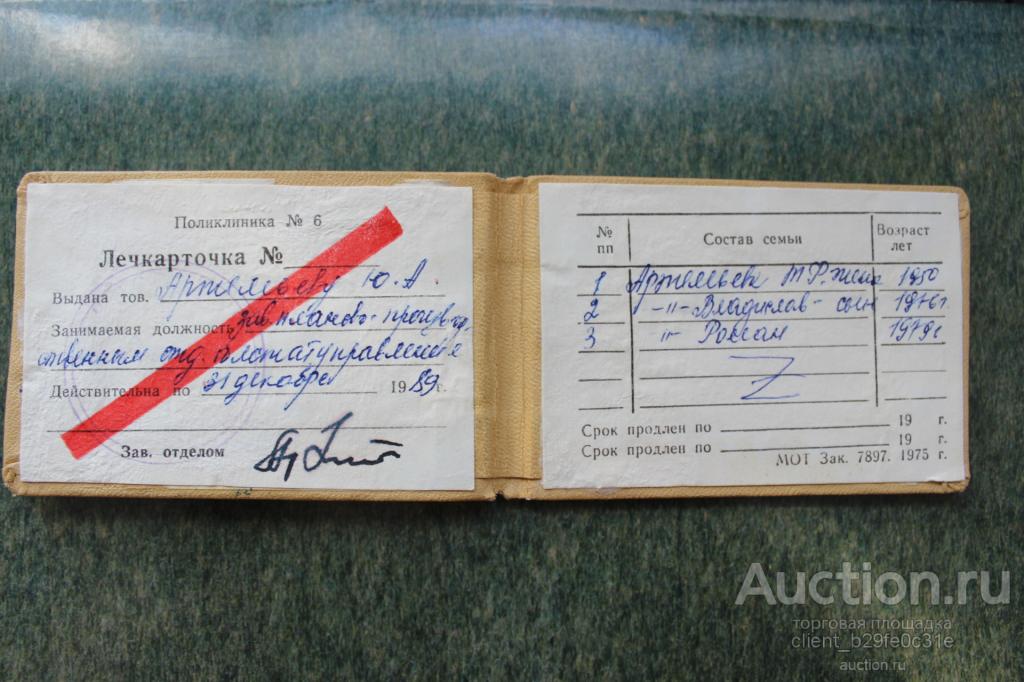 Поликлиника № 6
Лечкарточка №
Выдана тов. Артемьеву Ю. А
Занимаемая должность зав планово-произвд
ственным отд.
Действительна по 31 декабря 1989г.
Зав. отделом
№ пп Состав семьи Возраст лет
1 Артемьева Т. Р. жена 1950
2 -"- Владислав - сын 1976г
3 -"- Роман 1979г
Z
Срок продлен по 19 г.
Срок продлен по 19 г.
МОТ Зак. 7897. 1975 г.
Auction.ru
торговая площадка
client_b29fe0c31e
auction.ru